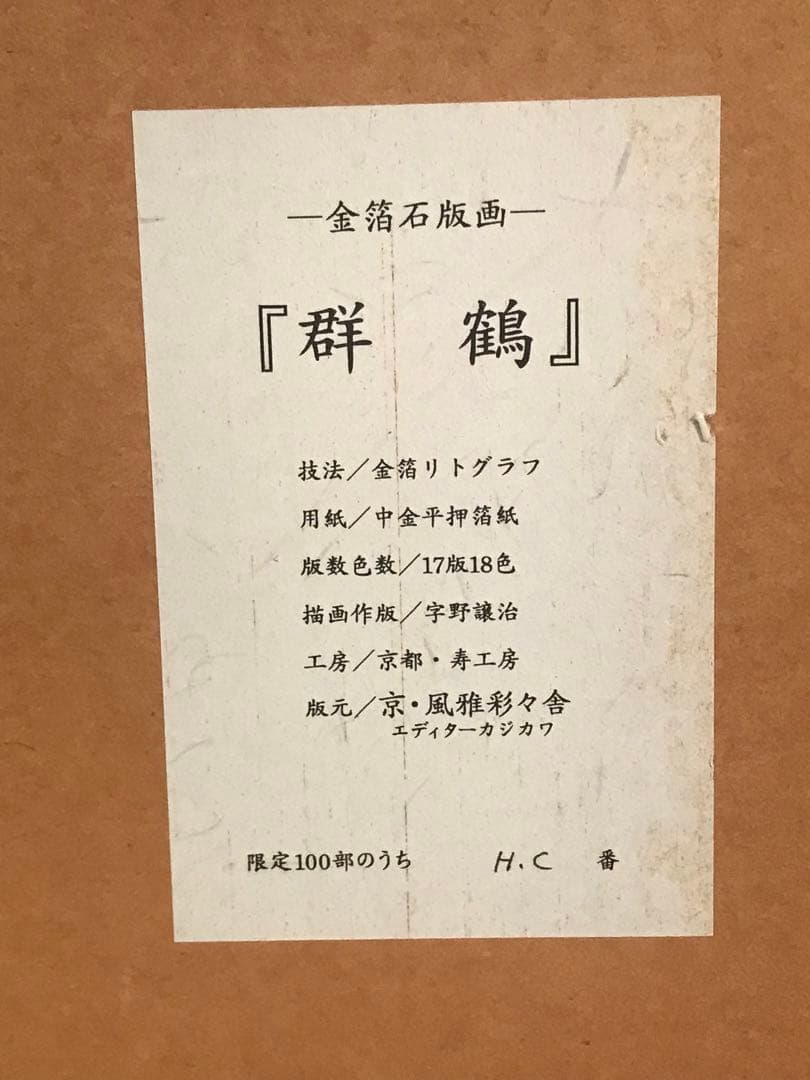 ―金箔石版画―
『群 鶴』
技法／金箔リトグラフ
用紙／中金平押箔紙
版数色数／17版18色
描画作版／字野譲治
工房／京都・寿工房
版元／京・風雅彩々舎
エディターカジカワ
限定100部のうち H.C 番